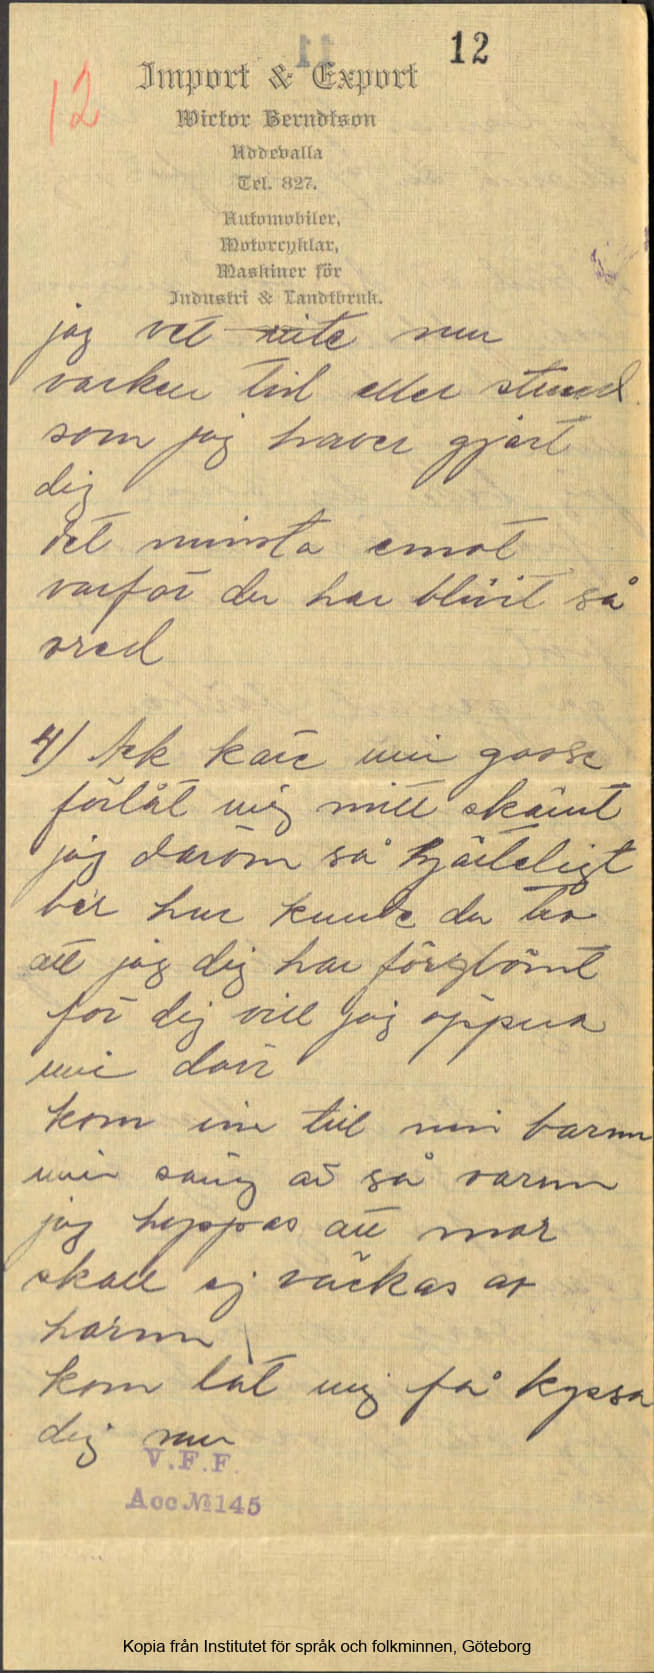 12
12
Import & Export
Wictor Berndtson
Uddevalla
Tel. 827.
Automobiler,
Motorcyklar,
Maskiner för
Industri & Landtbruk.
jag vet inte nu
varken tid eller stund
som jag haver gjärt
dig
det minsta emot
varför du har blivit så
vred
4) Ack käre min gosse
förlåt mig mitt skämt
jag darom så hjärteligt
ber hur kunde du tro
att jag dig har förglömt
för dig vill jag öppna
min dörr
kom in till min barm
min säng är så varm
jag hoppas att mor
skall ej väckas av
harm
kom låt mig få kyssa
dig nu
V.F.F.
Acc.№145
Kopia från Institutet för språk och folkminnen, Göteborg